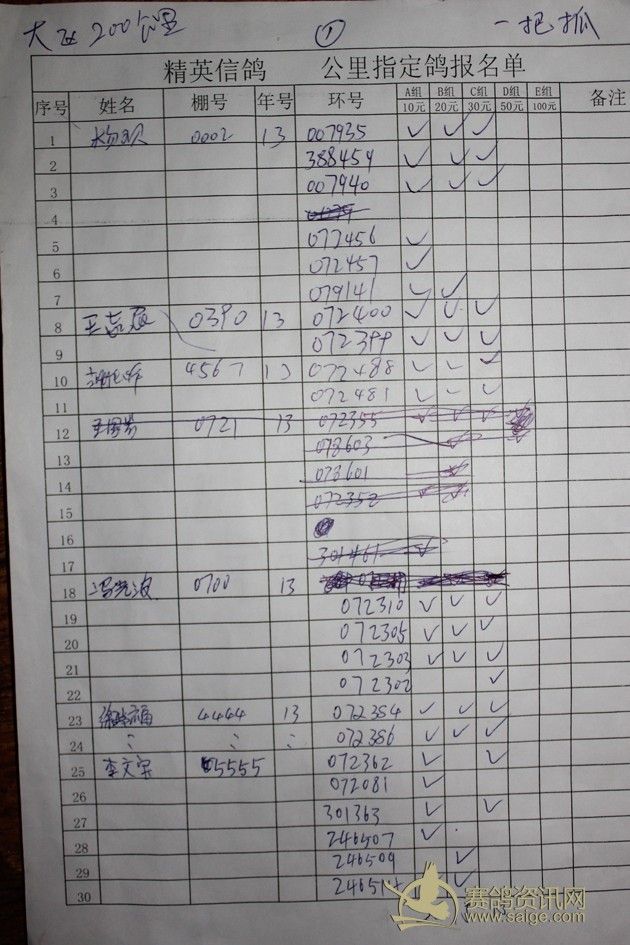 大区200公里 ① 一把抓
精英信鸽 公里指定鸽报名单
序号 姓名 棚号 年号 环号 A组 10元 B组 20元 C组 30元 D组 50元 E组 100元 备注
1 0002 13 007935 ✓ ✓ ✓
2 388459 ✓ ✓ ✓
3 007940 ✓ ✓ ✓
4
5 077456 ✓
6 072457 ✓
7 079141 ✓ ✓
8 0390 13 072400 ✓ ✓ ✓
9 072399 ✓ ✓ ✓
10 4567 13 072488 ✓ ✓ ✓
11 072481 ✓ ✓ ✓
12 0721 13 072355 ✓ ✓ ✓
13 078603 ✓
14 078601
15 072352
16
17 301461 ✓
18 0700 13
19 072310 ✓ ✓ ✓
20 072305 ✓ ✓ ✓
21 072303 ✓ ✓ ✓
22 072302 ✓
23 4444 13 072384 ✓ ✓ ✓
24 072386 ✓ ✓ ✓
25 李文军 05555 072362 ✓ ✓
26 072081 ✓
27 301363 ✓ ✓
28 246507 ✓
29 246509 ✓
30 ✓
赛鸽资讯网
www.saige.com